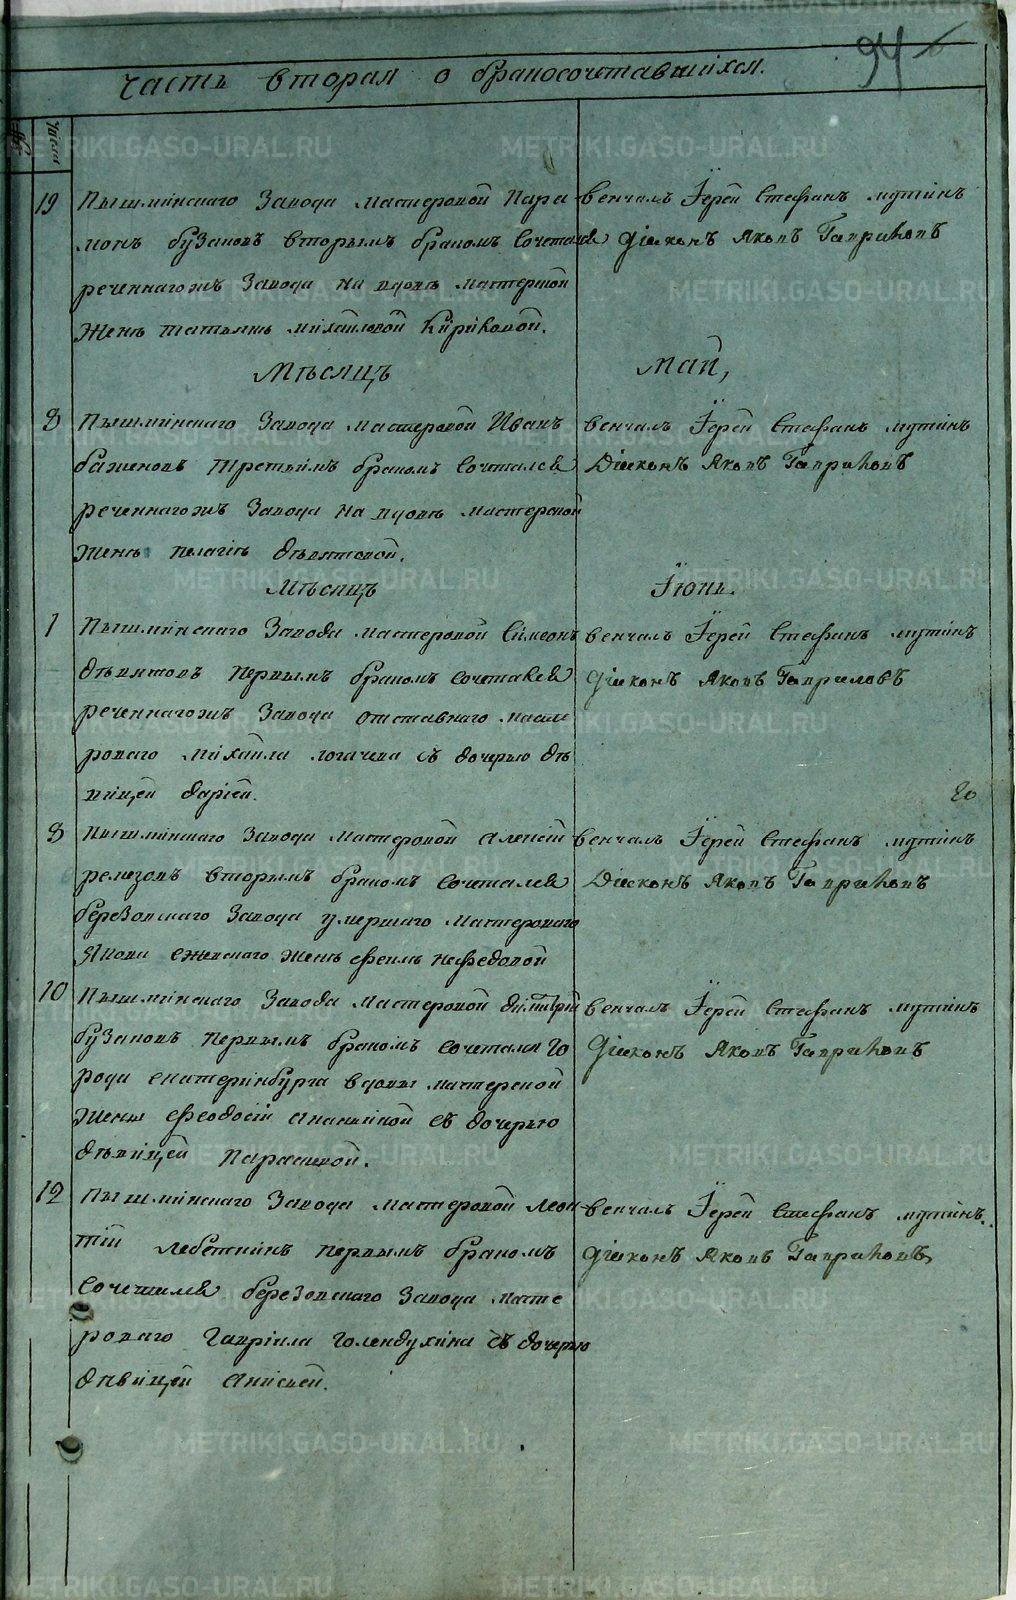 94
Часть вторая о бракосочетавшихся.
Числа
19 Пышминскаго Завода мастеровой Пара
монъ бузановъ вторымъ бракомъ Сочетался
реченнагожъ Завода на вдовѣ мастерской
Женѣ татьянѣ михайловой Кириковой.
Венчалъ Іерей Стефанъ мутинъ
Діаконъ Яковъ Гавриловъ
Мѣсяцъ Май,
8 Пышминскаго Завода мастеровой Иванъ
баженовъ третьимъ бракомъ Сочетался
реченнагожъ Завода на вдовѣ мастерской
Женѣ пелагіѣ дѣвятовой.
Венчалъ Іерей Стефанъ мутинъ
Діаконъ Яковъ Гавриловъ
Мѣсяцъ Іюнь.
1 Пышминскаго Завода мастеровой Симеонъ
дѣвятовъ первымъ бракомъ сочетался
реченнагожъ Завода отставнаго масте
роваго михаила логачева съ дочерью дѣ
вицей даріей.
Венчалъ Іерей Стефанъ мутинъ
Діаконъ Яковъ Гавриловъ
8 Пышминскаго Завода мастеровой алексѣй
ремезовъ вторымъ бракомъ сочетался
березовскаго Завода умершаго мастероваго
Якова ежевскаго женѣ ефимѣ нефедовой
Венчалъ Іерей Стефанъ мутинъ
Діаконъ Яковъ Гавриловъ
10 Пышминскаго Завода мастеровой димитрій
бузановъ первымъ бракомъ сочетался го
рода екатеринбурга вдовы мастерской
Жены феодосіи ананьиной съ дочерью
дѣвицей парасковой.
Венчалъ Іерей Стефанъ мутинъ
Діаконъ Яковъ Гавриловъ
12 Пышминскаго Завода мастеровой леон
тій лебеткинъ первымъ бракомъ
Сочетался березовскаго Завода масте
роваго гавріила голендухина съ дочерью
дѣвицей анисьей.
Венчалъ Іерей Стефанъ мутинъ.
Діаконъ Яковъ Гавриловъ,
METRIKI.GASO-URAL.RU